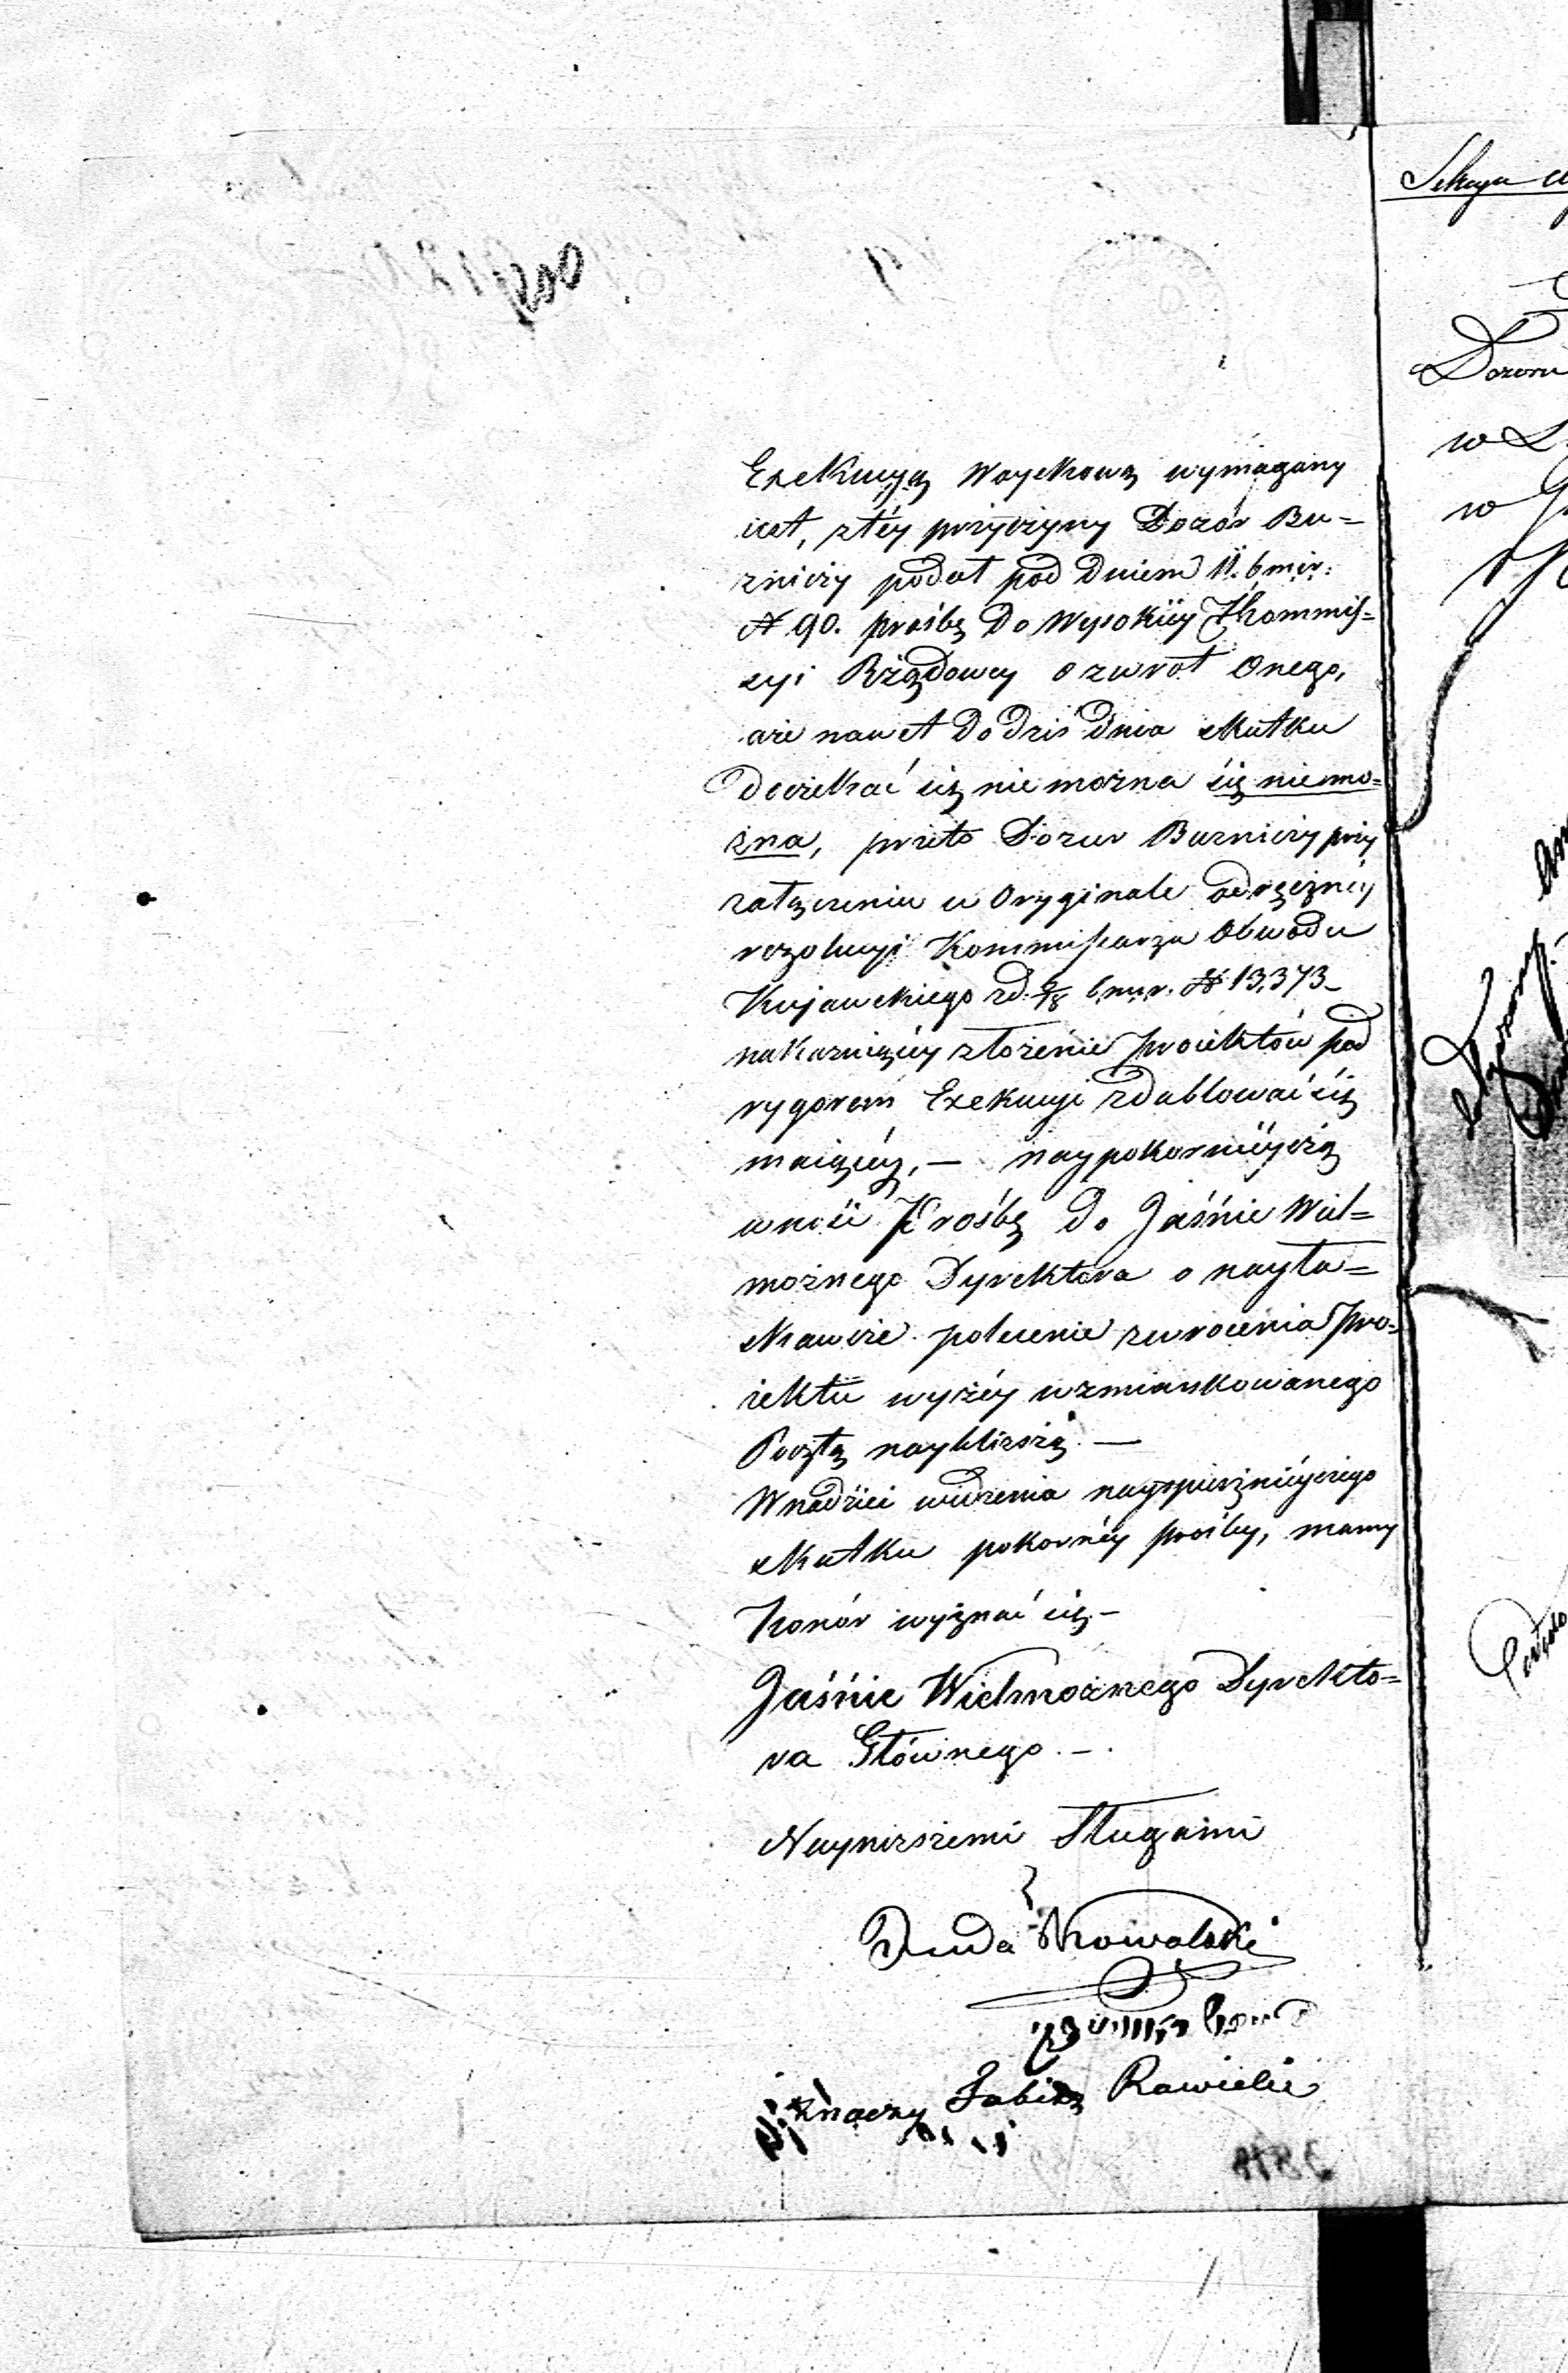 Exekucyą Woyskową wymagany
iest, z téy przyczyny Dozór Bu=
zniczy podał pod Dniem 11. b m i r:
N 90. prośbę Do Wysokiéy Kommis=
syi Rządowey o zwrot Onego,
aże nawet Do dziś Dnia skutku
Doczekać się nie można się niemo=
żna, przeto Dozur Buzniczy przy
załączeniu w Oryginale odręcznéy
rezolucyi Kommissarza Obwodu
Kujawskiego z d. 2/8 b. m. r. N 13,373_
nakazuiącéy złożenie proiektów pod
rygorem Exekucyi zdublować się
maiącéy, — naypokornieyszą
wnosi Prośbę do Jaśnie Wiel=
możnego Dyrektora o nayła=
skawsze polecenie zwrocenia Pro=
iektu wyżéy wzmiankowanego
Pocztą naybliższą. —
W nadziei widzenia nayspieszniéyszego
skutku pokornéy prośby, mamy
honór wyznać się. —
Jaśnie Wielmożnego Dyrekto=
ra Głównego. —.
Nayniższemi Sługami
Duda Nowalski
znaczy Jabik Rawicki
Sekcya
Dozoru
w
w